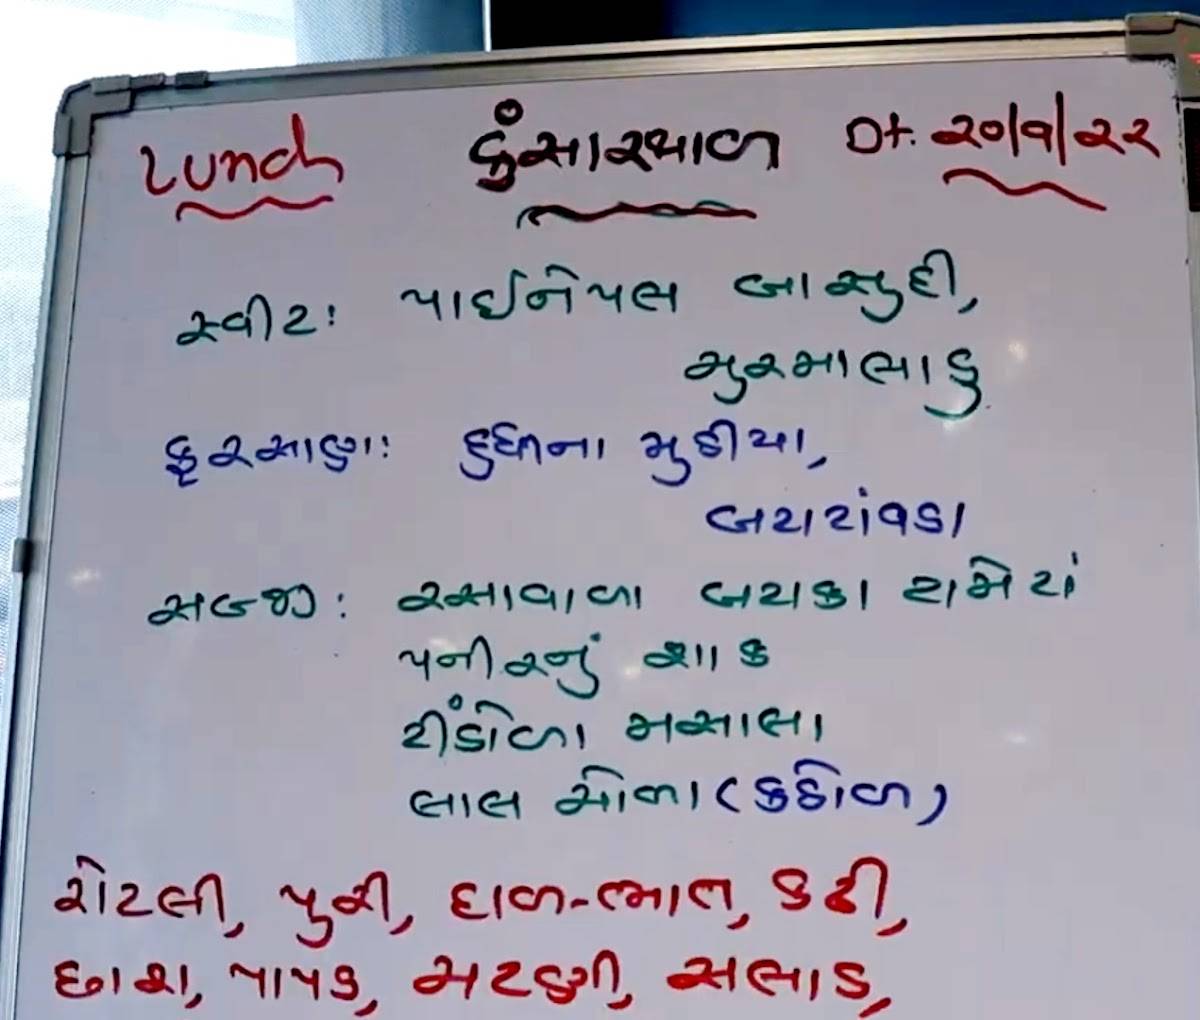 Lunch કુંસારથાળ Dt. ૨૦/૧/૨૨
સ્વીટ: પાઈનેપલ બાસુદી,
મુરમાલાડુ
ફરસાણ: દુધીના મુઠીયા,
બટાટાંવડા
સબ્જી: રસાવાળા બટાકા ટામેટાં
પનીરનું શાક
ટીંડોળા મસાલા
લાલ ચોળા (કઠોળ)
રોટલી, પુરી, દાળ-ભાત, કઢી,
છાશ, પાપડ, ચટણી, સલાડ,